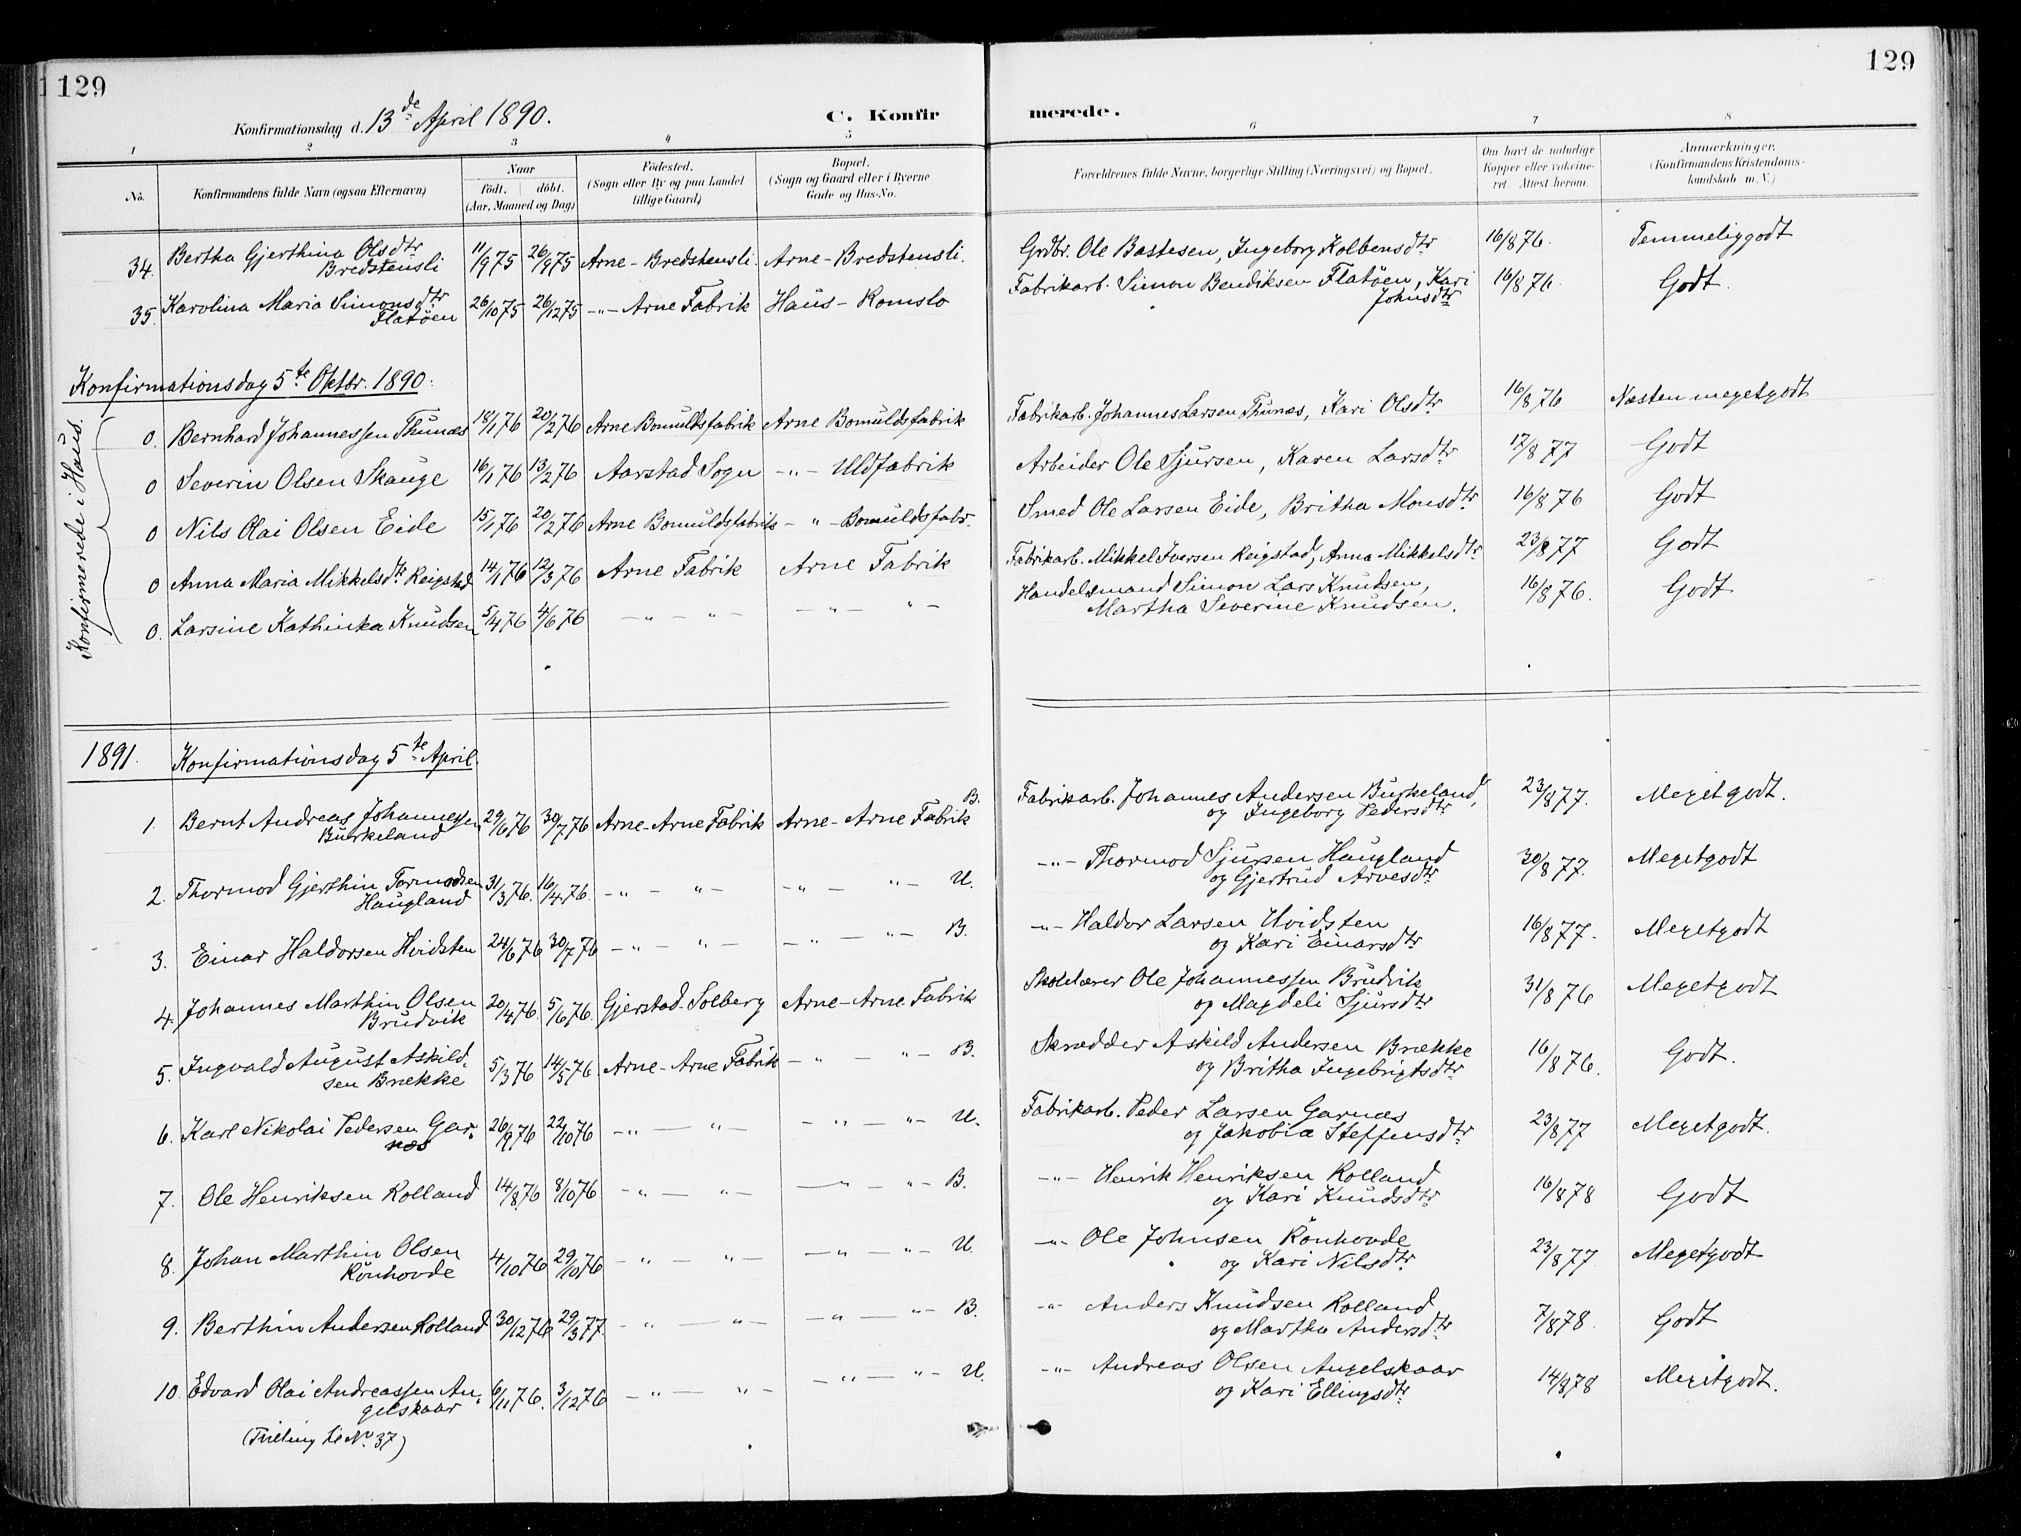 129
129
Konfirmationsdag d. 13de April 1890.
C. Konfir
merede.
1 2 3 4 5 6 7 8
No.
Konfirmandens fulde Navn (ogsaa Efternavn)
Naar
födt. döbt.
(Aar, Maaned og Dag)
Födested.
(Sogn eller By og paa Landet
tillige Gaard)
Bopæl.
(Sogn og Gaard eller i Byerne
Gade og Hus-No.
Forældrenes fulde Navne, borgerlige Stilling (Næringsvei) og Bopæl.
Om havt de naturlige
Kopper eller vakcine-
ret. Attest herom.
Anmærkninger.
(Konfirmandens Kristendoms-
kundskab m. V.)
34. Bertha Gjerthina Olsdtr 11/9 75 26/9 75 Arne - Bredstensli. Arne - Bredstensli. Grdbr. Ole Bastesen, Ingeborg Kolbensdtr 16/8 76. Temmeliggodt
Bredstensli
35. Karolina Maria Simonsdtr 26/10 75 26/12 75 -"- Arne Fabrik Haus - Romslo Fabrikarb. Simon Bendiksen Flatöen, Kari 16/8 76. Godt.
Flatöen Johnsdtr
Konfirmationsdag 5te Oktbr. 1890.
Konfirmerede i Haus.
0. Bernhard Johannessen Thunæs 18/1 76 20/2 76 Arne Bomuldsfabrik Arne Bomuldsfabrik Fabrikarb. Johannes Larsen Thunæs, Kari Olsdtr 16/8 76 Næsten megetgodt
0 Severin Olsen Skauge 16/1 76 13/2 76 Aarstad Sogn -"- Uldfabrik Arbeider Ole Sjursen, Karen Larsdtr 17/8 77 Godt
0 Nils Olai Olsen Eide 15/1 76 20/2 76 Arne Bomuldsfabrik - " - Bomuldsfabr. Smed Ole Larsen Eide, Britha Monsdtr 16/8 76 Godt
0 Anna Maria Mikkelsdtr Reigstad 14/1 76 12/3 76 Arne Fabrik Arne Fabrik Fabrikarb. Mikkel Iversen Reigstad, Anna Mikkelsdtr 23/8 77 Godt
0. Larsine Kathinka Knudsen 5/4 76 4/6 76 - " - " - - " - " - Handelsmand Simon Lars Knudsen, 16/8 76. Godt
Martha Severine Knudsen.
1891. Konfirmationsdag 5te April.
1. Bernt Andreas Johannessen 29/6 76 30/7 76 Arne - Arne Fabrik Arne - Arne Fabrik B. Fabrikarb. Johannes Andersen Burkeland, 23/8 77. Megetgodt.
Burkeland og Ingeborg Pedersdtr
2. Thormod Gjerthin Tormodsen 31/3 76. 16/4 76. -"- "- -"- "- U. -"- Thormod Sjursen Haugland 30/8 77. Megetgodt
Haugland og Gjertrud Arvesdtr
3. Einar Haldorsen Hvidsten 24/6 76 30/7 76 -"- "- -"- "- B. -"- Haldor Larsen Hvidsten 16/8 77. Megetgodt
og Kari Einarsdtr
4. Johannes Marthin Olsen 20/4 76. 5/6 76. Gjerstad - Solberg Arne - Arne Fabrik Skolelærer Ole Johannessen Brudvik 31/8 76 Megetgodt
Brudvik og Magdeli Sjursdtr
5. Ingvald August Askild- 5/3 76 14/5 76 Arne - Arne Fabrik -"- "- B. Skrædder Askild Andersen Brække 16/8 76. Godt.
sen Brække og Britha Ingebrigtsdtr
6. Karl Nikolai Pedersen Gar- 26/9 76 22/10 76 -"- "- -"- "- U. Fabrikarb. Peder Larsen Garnæs 23/8 77 Megetgodt.
næs og Jakobia Steffensdtr
7. Ole Henriksen Rolland 14/8 76 8/10 76 -"- "- -"- "- B. -"- Henrik Henriksen Rolland 16/8 78 Godt
og Kari Knudsdtr
8. Johan Marthin Olsen 4/10 76 29/10 76 -"- "- -"- "- U. -"- Ole Johnsen Rönhovde 23/8 77. Megetgodt
Rönhovde og Kari Nilsdtr
9. Berthin Andersen Rolland 30/12 76 29/3 77. -"- "- -"- "- B. -"- Anders Knudsen Rolland 7/8 78. Godt
og Martha Andersdtr
10. Edvard Olai Andreassen An- 6/11 76. 3/12 76 -"- "- -"- "- U. -"- Andreas Olsen Angelskaar 14/8 78 Megetgodt.
gelskaar og Kari Ellingsdtr
(Tvilling til No 37)